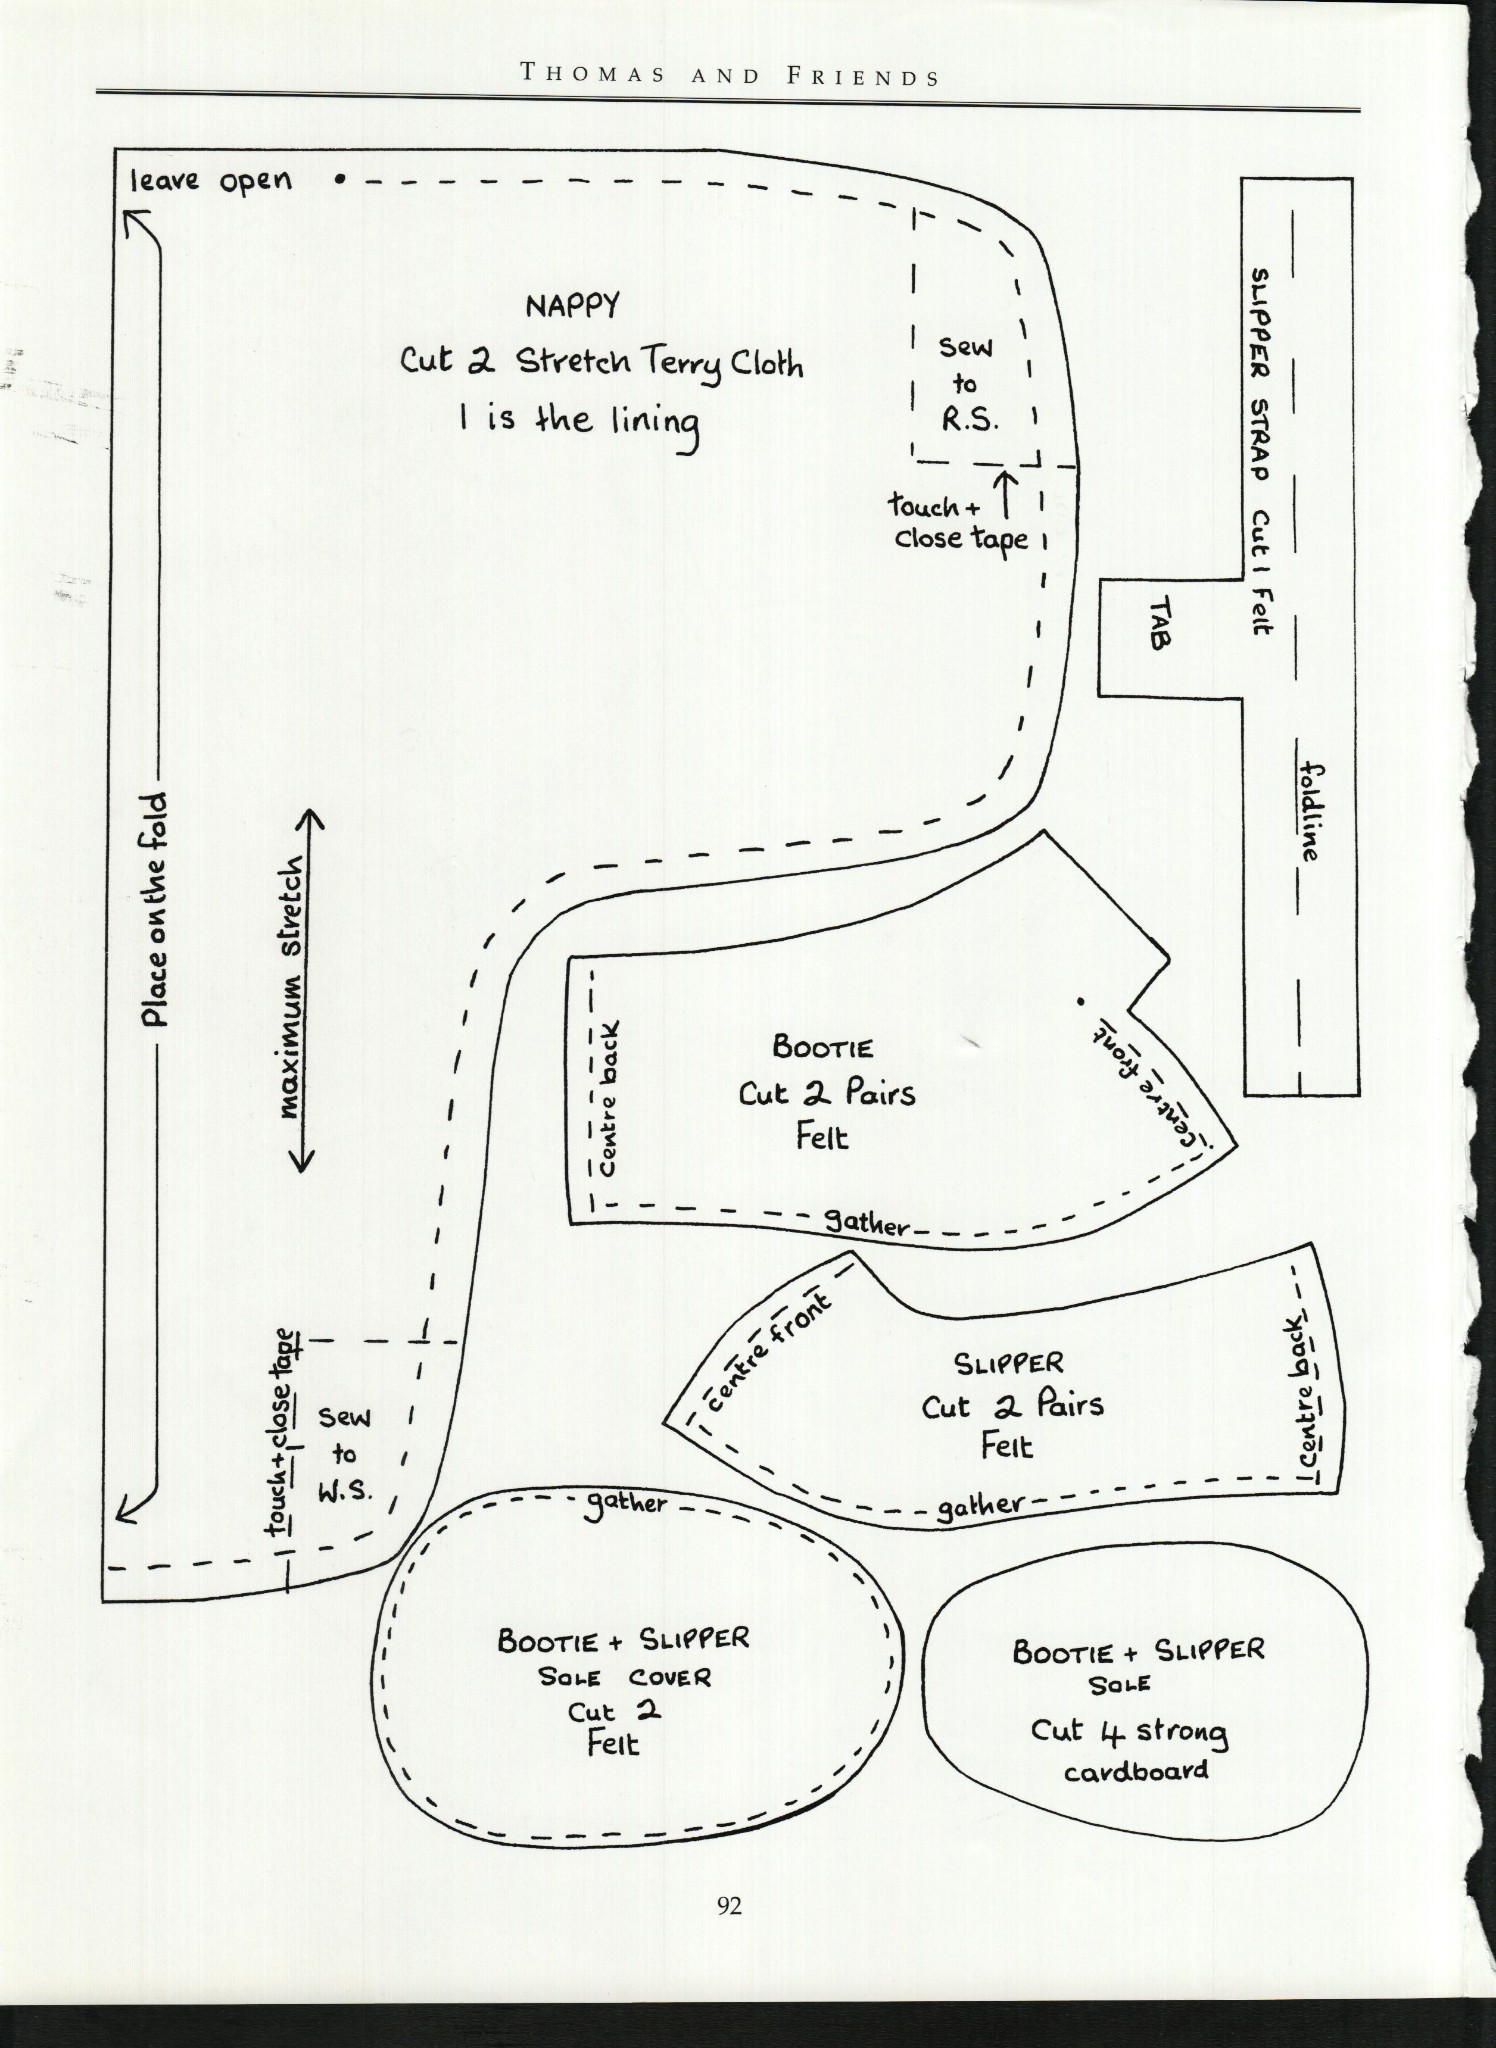 THOMAS AND FRIENDS
leave open
NAPPY
Cut 2 Stretch Terry Cloth
1 is the lining
Sew
to
R.S.
touch +
close tape
Place on the fold
maximum stretch
touch + close tape
Sew
to
W.S.
SLIPPER STRAP Cut 1 Felt
TAB
foldline
BOOTIE
Cut 2 Pairs
Felt
Centre back
Centre front
gather
SLIPPER
Cut 2 Pairs
Felt
centre front
Centre back
gather
gather
BOOTIE + SLIPPER
SOLE COVER
Cut 2
Felt
BOOTIE + SLIPPER
SOLE
Cut 4 strong
cardboard
92